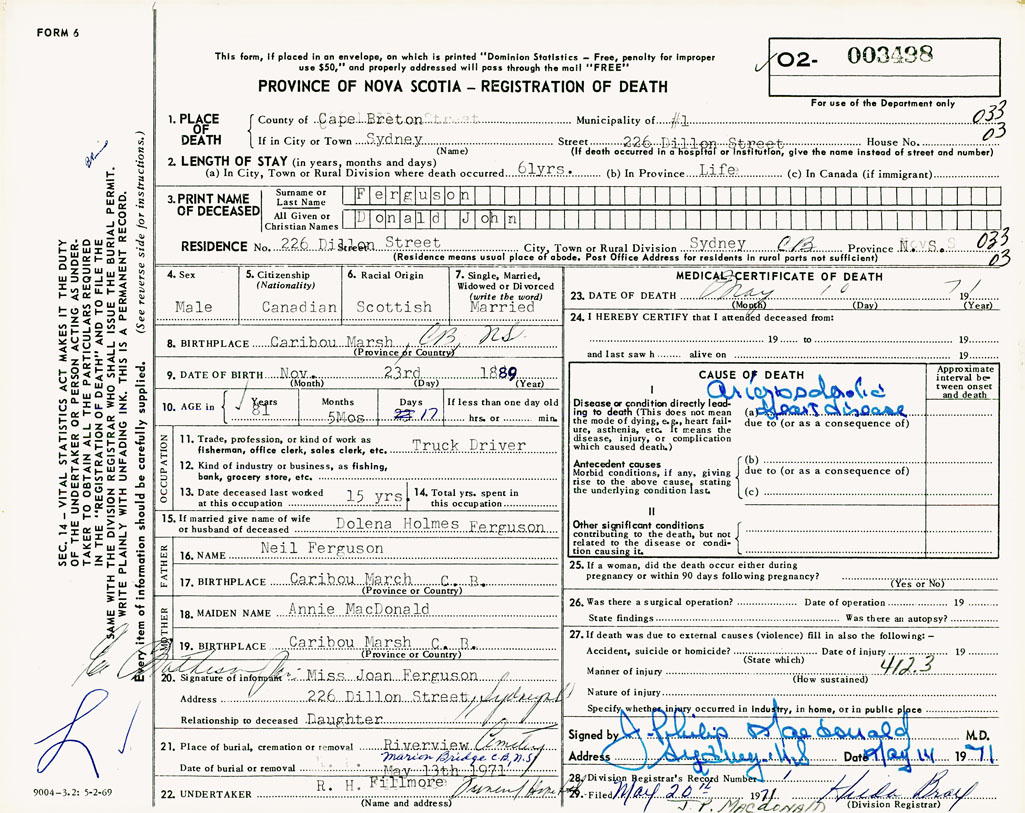 FORM 6
This form, if placed in an envelope, on which is printed "Dominion Statistics – Free, penalty for improper
use $50," and properly addressed will pass through the mail "FREE"
PROVINCE OF NOVA SCOTIA – REGISTRATION OF DEATH
O2- 003498
For use of the Department only
SEC. 14 – VITAL STATISTICS ACT MAKES IT THE DUTY
OF THE UNDERTAKER OR PERSON ACTING AS UNDER-
TAKER TO OBTAIN ALL THE PARTICULARS REQUIRED
IN THE "REGISTRATION OF DEATH" AND TO FILE THE
SAME WITH THE DIVISION REGISTRAR WHO SHALL ISSUE THE BURIAL PERMIT.
WRITE PLAINLY WITH UNFADING INK. THIS IS A PERMANENT RECORD.
Every item of information should be carefully supplied. (See reverse side for instructions.)
1. PLACE OF DEATH
County of Cape Breton Municipality of #1 033
If in City or Town Sydney Street 226 Dillon Street House No. 03
(Name) (If death occurred in a hospital or institution, give the name instead of street and number)
2. LENGTH OF STAY (in years, months and days)
(a) In City, Town or Rural Division where death occurred 61yrs. (b) In Province Life (c) In Canada (if immigrant)
3. PRINT NAME OF DECEASED
Surname or Last Name Ferguson
All Given or Christian Names Donald John
RESIDENCE No. 226 Dillon Street Street City, Town or Rural Division Sydney CB Province N.S. 033
(Residence means usual place of abode. Post Office Address for residents in rural parts not sufficient) 03
4. Sex
Male
5. Citizenship
(Nationality)
Canadian
6. Racial Origin
Scottish
7. Single, Married,
Widowed or Divorced
(write the word)
Married
8. BIRTHPLACE Caribou Marsh CB, NS.
(Province or Country)
9. DATE OF BIRTH Nov. 23rd 1889
(Month) (Day) (Year)
10. AGE in Years Months Days If less than one day old
81 5Mos 17 hrs. or min.
OCCUPATION
11. Trade, profession, or kind of work as
fisherman, office clerk, sales clerk, etc. Truck Driver
12. Kind of industry or business, as fishing,
bank, grocery store, etc.
13. Date deceased last worked
at this occupation 15 yrs.
14. Total yrs. spent in
this occupation
15. If married give name of wife
or husband of deceased Dolena Holmes Ferguson
FATHER
16. NAME Neil Ferguson
17. BIRTHPLACE Caribou March C. B.
(Province or Country)
MOTHER
18. MAIDEN NAME Annie MacDonald
19. BIRTHPLACE Caribou Marsh C. B.
(Province or Country)
20. Signature of informant Miss Joan Ferguson
Address 226 Dillon Street, Sydney
Relationship to deceased Daughter
21. Place of burial, cremation or removal Riverview Cemetery
Marion Bridge C.B, N.S
Date of burial or removal May 13th 1971
22. UNDERTAKER R. H. Fillmore Funeral Home
(Name and address)
9004-3.2: 5-2-69
MEDICAL CERTIFICATE OF DEATH
23. DATE OF DEATH May 10 1971
(Month) (Day) (Year)
24. I HEREBY CERTIFY that I attended deceased from:
19 to 19
and last saw h alive on 19
CAUSE OF DEATH
Approximate
interval be-
tween onset
and death
I
Disease or condition directly lead-
ing to death (This does not mean
the mode of dying, e.g., heart fail-
ure, asthenia, etc. It means the
disease, injury, or complication
which caused death.)
(a) heart disease
due to (or as a consequence of)
Antecedent causes
Morbid conditions, if any, giving
rise to the above cause, stating
the underlying condition last.
(b)
due to (or as a consequence of)
(c)
II
Other significant conditions
contributing to the death, but not
related to the disease or condi-
tion causing it.
25. If a woman, did the death occur either during
pregnancy or within 90 days following pregnancy?
(Yes or No)
26. Was there a surgical operation? Date of operation 19
State findings Was there an autopsy?
27. If death was due to external causes (violence) fill in also the following: –
Accident, suicide or homicide? Date of injury 19
(State which)
Manner of injury 412.3
(How sustained)
Nature of injury
Specify, whether injury occurred in industry, in home, or in public place
Signed by J. Philip Macdonald M.D.
Address Sydney. N.S Date May 14 1971
28. Division Registrar's Record Number
29. Filed May 20th 1971 Hilda Bray
J. P. MACDONALD (Division Registrar)